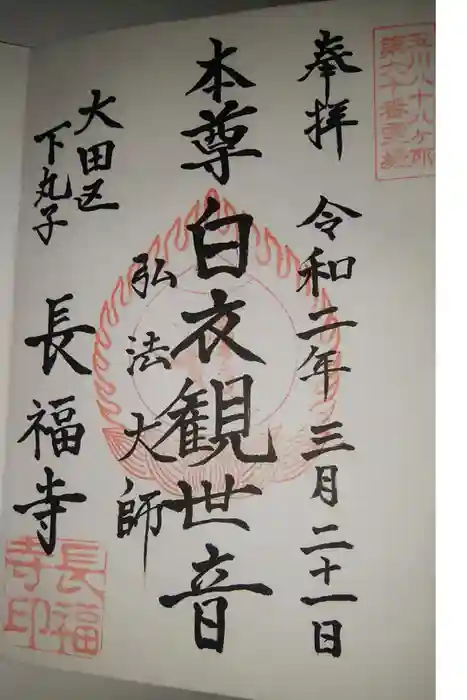 玉川八十八ヶ所
第六十番霊場
奉拝 令和二年 三月二十一日
本尊 白衣観世音
弘法大師
大田区
下丸子
長福寺
長福
寺印